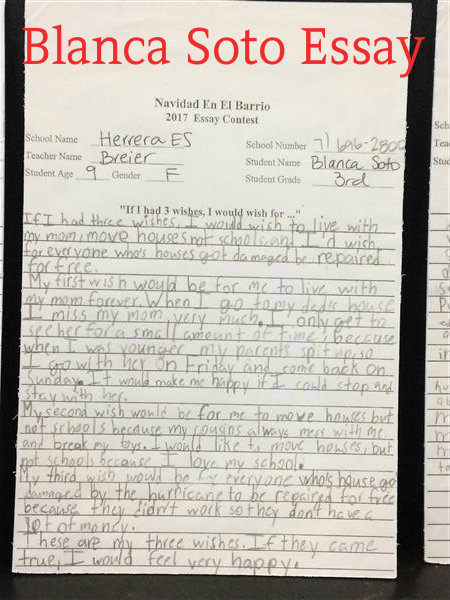 Blanca Soto Essay
Navidad En El Barrio
2017 Essay Contest
School Name Herrera ES School Number 7/696-2800
Teacher Name Breier Student Name Blanca Soto
Student Age 9 Gender F Student Grade 3rd
"If I had 3 wishes, I would wish for ..."
If I had three wishes, I would wish to live with
my mom, move houses not schools, and I'd wish
for everyone who's houses got damaged be repaired
for free.
My first wish would be for me to live with
my mom forever. When I go to my dad's house
I miss my mom very much. I only get to
see her for a small amount of time, because
when I was younger my parents split up, so
I go with her on Friday and come back on
Sunday. It would make me happy if I could stop and
stay with her.
My second wish would be for me to move houses but
not schools because my cousins always mess with me
and break my toys. I would like to move houses, but
not schools because I love my school.
My third wish would be for everyone who's house go
damaged by the hurricane to be repaired for free
because they didn't work so they don't have a
lot of money.
These are my three wishes. If they came
true, I would feel very happy.